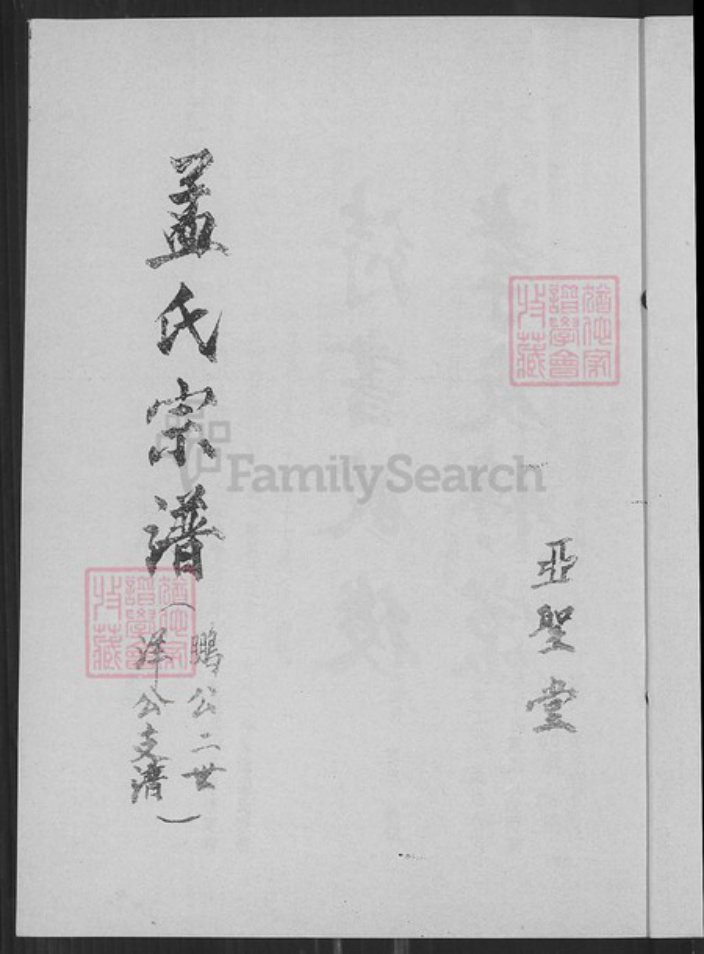 亚聖堂
孟氏宗谱
(鵬公二世
洋公支谱)
猶他家
譜學會
收藏
猶他家
譜學會
收藏
FamilySearch